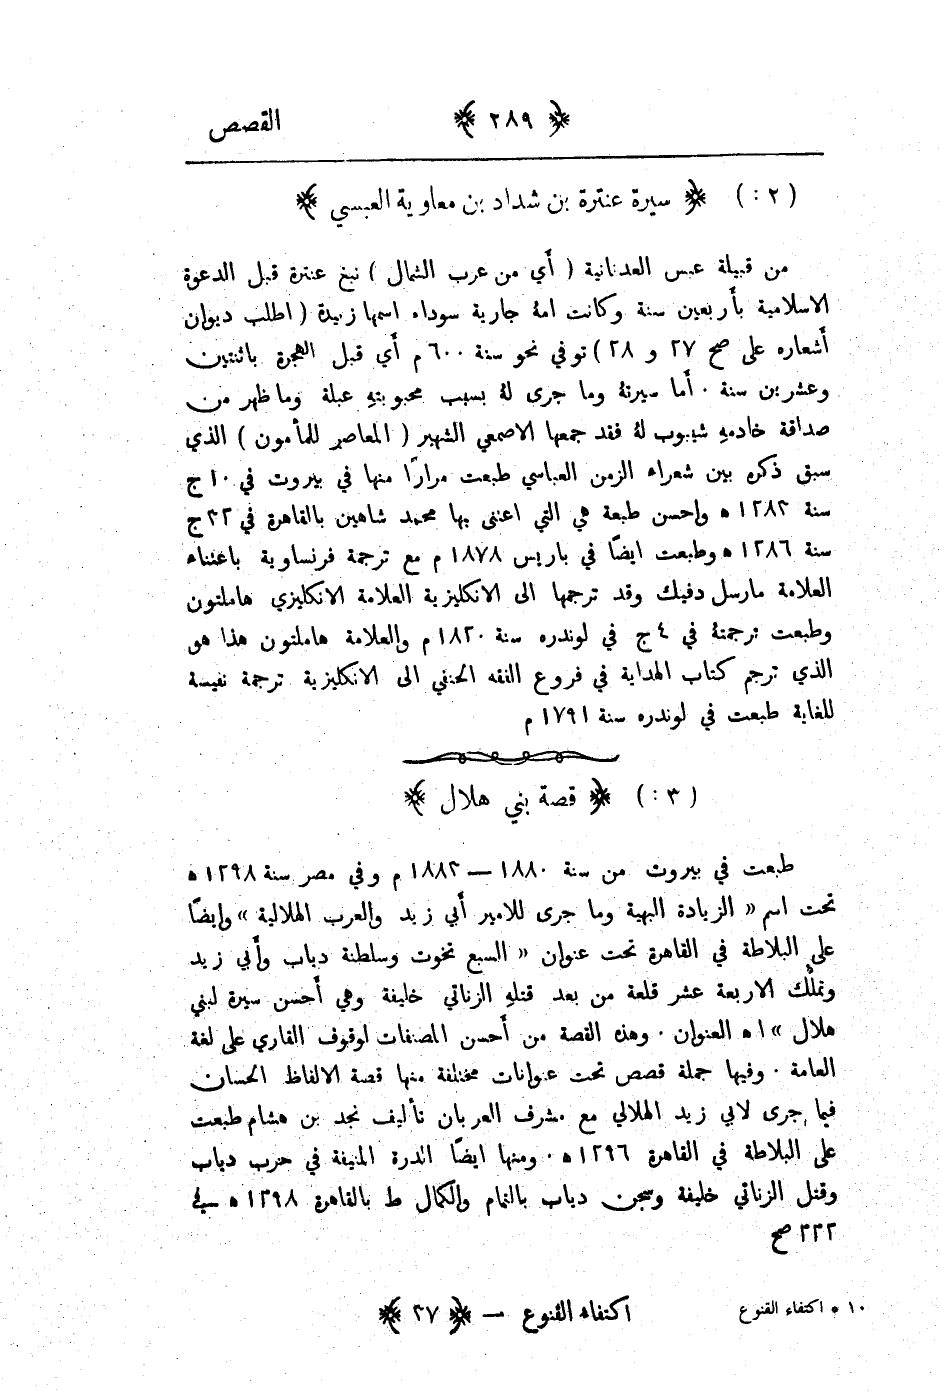 القصص ﴿ ٢٨٩ ﴾
( ٢ : ) ﴿ سيرة عنترة بن شداد بن معاوية العبسي ﴾
من قبيلة عبس العدنانية ( أي من عرب الشمال ) نبغ عنترة قبل الدعوة
الاسلامية بأربعين سنة وكانت امهُ جارية سوداء اسمها زبيدة ( اطلب ديوان
أشعاره على صح ٢٧ و ٢٨ ) توفي نحو سنة ٦٠٠ م أي قبل الهجرة باثنتين
وعشرين سنة ٠ أما سيرتهُ وما جرى لهُ بسبب محبوبتهِ عبلة وما ظهر من
صداقة خادمهِ شيبوب لهُ فقد جمعها الاصمعي الشهير ( المعاصر للمأمون ) الذي
سبق ذكره بين شعراء الزمن العباسي طبعت مرارًا منها في بيروت في ١٠ ج
سنة ١٢٨٣ ه واحسن طبعة هي التي اعتنى بها محمد شاهين بالقاهرة في ٣٢ ج
سنة ١٢٨٦ ه وطبعت ايضًا في باريس ١٨٧٨ م مع ترجمة فرنساوية باعتناء
العلامة مارسل دفيك وقد ترجمها الى الانكليزية العلامة الانكليزي هاملتون
وطبعت ترجمتهُ في ٤ ج في لوندره سنة ١٨٢٠ م والعلامة هاملتون هذا هو
الذي ترجم كتاب الهداية في فروع الفقه الحنفي الى الانكليزية ترجمة نفيسة
للغاية طبعت في لوندره سنة ١٧٩١ م
( ٣ : ) ﴿ قصة بني هلال ﴾
طبعت في بيروت من سنة ١٨٨٠ — ١٨٨٣ م وفي مصر سنة ١٢٩٨ ه
تحت اسم « الزيادة البهية وما جرى للامير أبي زيد والعرب الهلالية » وايضًا
على البلاطة في القاهرة تحت عنوان « السبع تخوت وسلطنة دياب وأبي زيد
وتملُّك الاربعة عشر قلعة من بعد قتلهِ الزناتي خليفة وهي أحسن سيرة لبني
هلال » اه العنوان ٠ وهذه القصة من أحسن المصنفات لوقوف القاري على لغة
العامة ٠ وفيها جملة قصص تحت عنوانات مختلفة منها قصة الالفاظ الحسان
فيما جرى لابي زيد الهلالي مع مشرف العربان تأليف نجد بن هشام طبعت
على البلاطة في القاهرة ١٢٩٦ ه ٠ ومنها ايضًا الدرة المنيفة في حرب دياب
وقتل الزناتي خليفة وسجن دياب بالتمام والكمال ط بالقاهرة ١٢٩٨ ه في
٢٣٢ صح
١٠ * اكتفاء القنوع اكتفاء القنوع — ﴿ ٣٧ ﴾